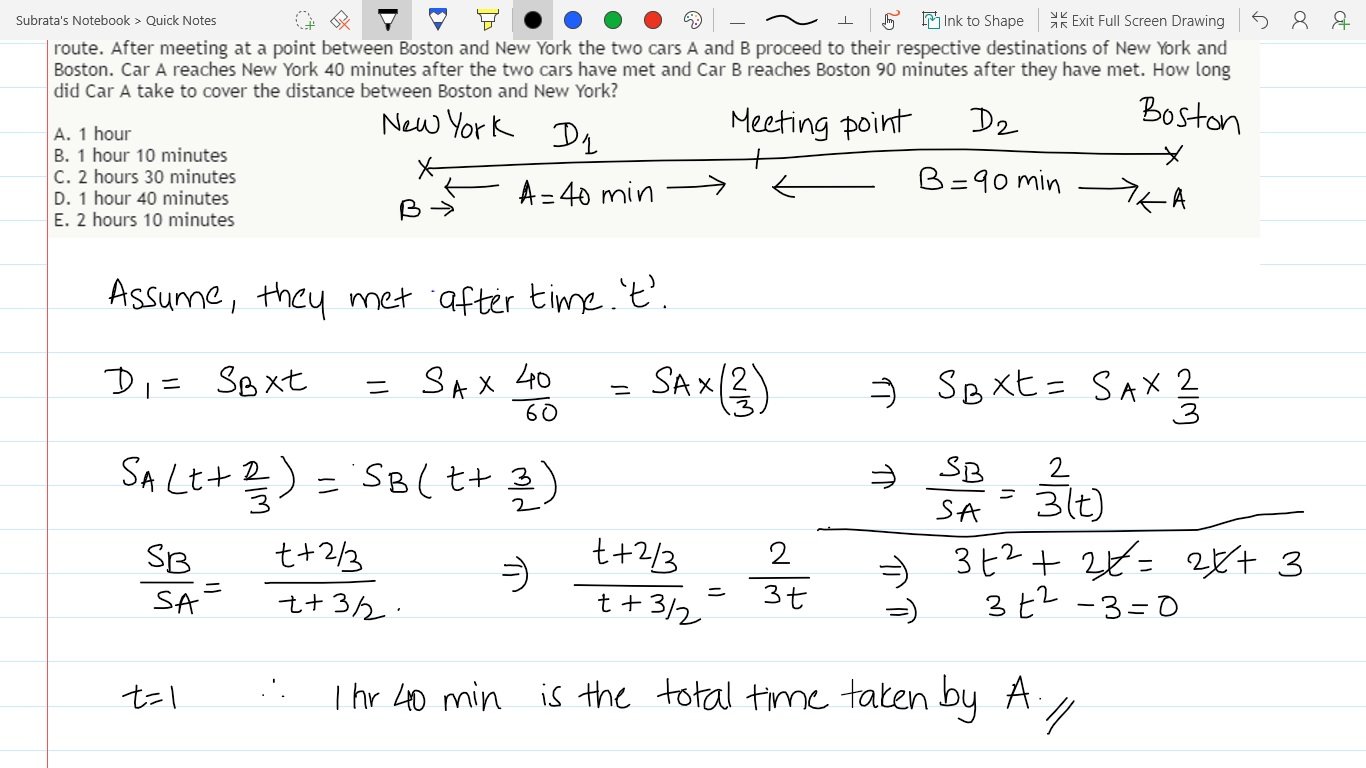 Subrata's Notebook > Quick Notes
Ink to Shape
Exit Full Screen Drawing
route. After meeting at a point between Boston and New York the two cars A and B proceed to their respective destinations of New York and
Boston. Car A reaches New York 40 minutes after the two cars have met and Car B reaches Boston 90 minutes after they have met. How long
did Car A take to cover the distance between Boston and New York?
A. 1 hour
B. 1 hour 10 minutes
C. 2 hours 30 minutes
D. 1 hour 40 minutes
E. 2 hours 10 minutes
New York D1 Meeting point D2 Boston
B → ← A = 40 min → ← B = 90 min → ← A
Assume, they met after time 't'.
D1 = SB × t = SA × 40/60 = SA × (2/3) ⇒ SB × t = SA × 2/3
SA (t + 2/3) = SB (t + 3/2) ⇒ SB/SA = 2/3(t)
SB/SA = t + 2/3 / t + 3/2. ⇒ t + 2/3 / t + 3/2 = 2/3t ⇒ 3t² + 2t = 2t + 3
⇒ 3t² - 3 = 0
t = 1 ∴ 1 hr 40 min is the total time taken by A.//